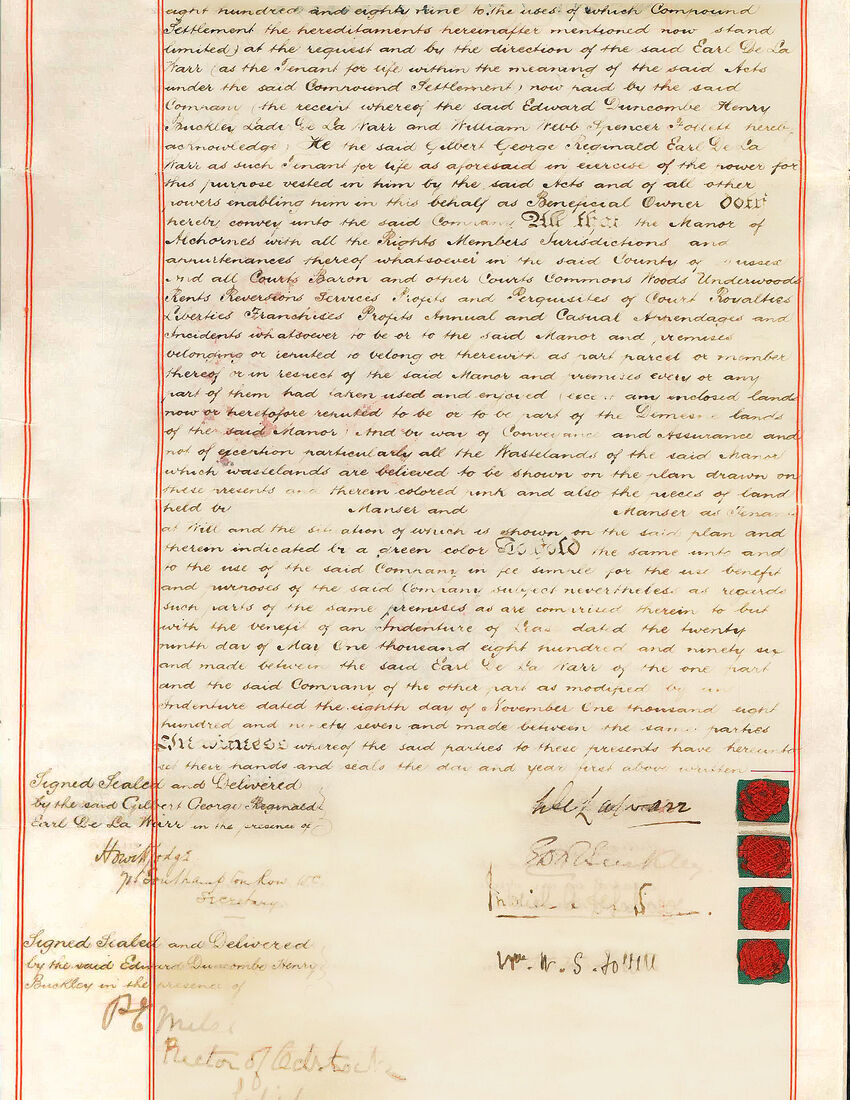 eight hundred and eighty nine to the uses of which Compound
Settlement the hereditaments hereinafter mentioned now stand
limited) at the request and by the direction of the said Earl De La
Warr (as the Tenant for life within the meaning of the said Acts
under the said Compound Settlement) now paid by the said
Company (the receipt whereof the said Edward Duncombe Henry
Buckley Lady De La Warr and William Webb Spencer Follett hereby
acknowledge) He the said Gilbert George Reginald Earl De La
Warr as such Tenant for life as aforesaid in exercise of the power for
this purpose vested in him by the said Acts and of all other
powers enabling him in this behalf as Beneficial Owner Doth
hereby convey unto the said Company All that the Manor of
Alchornes with all the Rights Members Jurisdictions and
appurtenances thereof whatsoever in the said County of Sussex
And all Courts Baron and other Courts Commons Woods Underwoods
Rents Reversions Services Profits and Perquisites of Court Royalties
Liberties Franchises Profits Annual and Casual Appendages and
Incidents whatsoever to be or to the said Manor and premises
belonging or reputed to belong or therewith as part parcel or member
thereof or in respect of the said Manor and premises every or any
part of them had taken used and enjoyed any inclosed lands
now or heretofore reputed to be or to be part of the Demesne lands
of the said Manor) And by way of Conveyance and Assurance and
not of exception particularly all the Wastelands of the said Manor
which wastelands are believed to be shown on the plan drawn on
these presents and therein colored pink and also the pieces of land
held by Manser and Manser as Tenants
at Will and the situation of which is shown on the said plan and
therein indicated by a green color To hold the same unto and
to the use of the said Company in fee simple for the use benefit
and purposes of the said Company subject nevertheless as regards
such parts of the same premises as are comprised therein to but
with the benefit of an Indenture of Lease dated the twenty
ninth day of May One thousand eight hundred and ninety six
and made between the said Earl De La Warr of the one part
and the said Company of the other part as modified by an
Indenture dated the eighth day of November One thousand eight
hundred and ninety seven and made between the same parties
In witness whereof the said parties to these presents have hereunto
set their hands and seals the day and year first above written
Signed Sealed and Delivered
by the said Gilbert George Reginald
Earl De La Warr in the presence of
De La Warr
E D H Buckley
Southampton Row WC
Secretary
Signed Sealed and Delivered
by the said Edward Duncombe Henry
Buckley in the presence of
Wm. W. S. Follett
Miles
Rector of